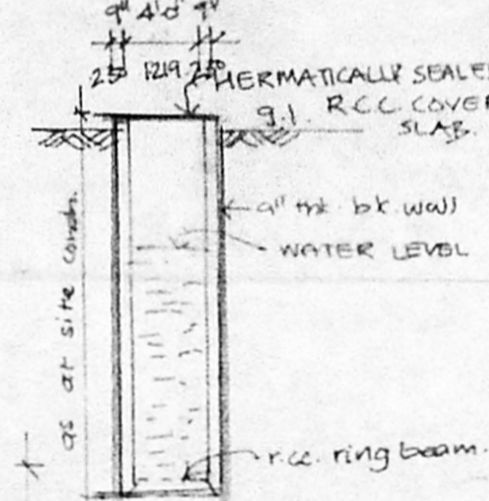 9" 4'0" 9"
230 1219 230
HERMATICALLY SEALED
g.i. R.C.C. COVER
SLAB.
9" thk. bk. wall
WATER LEVEL
as at site condn.
r.cc. ring beam.